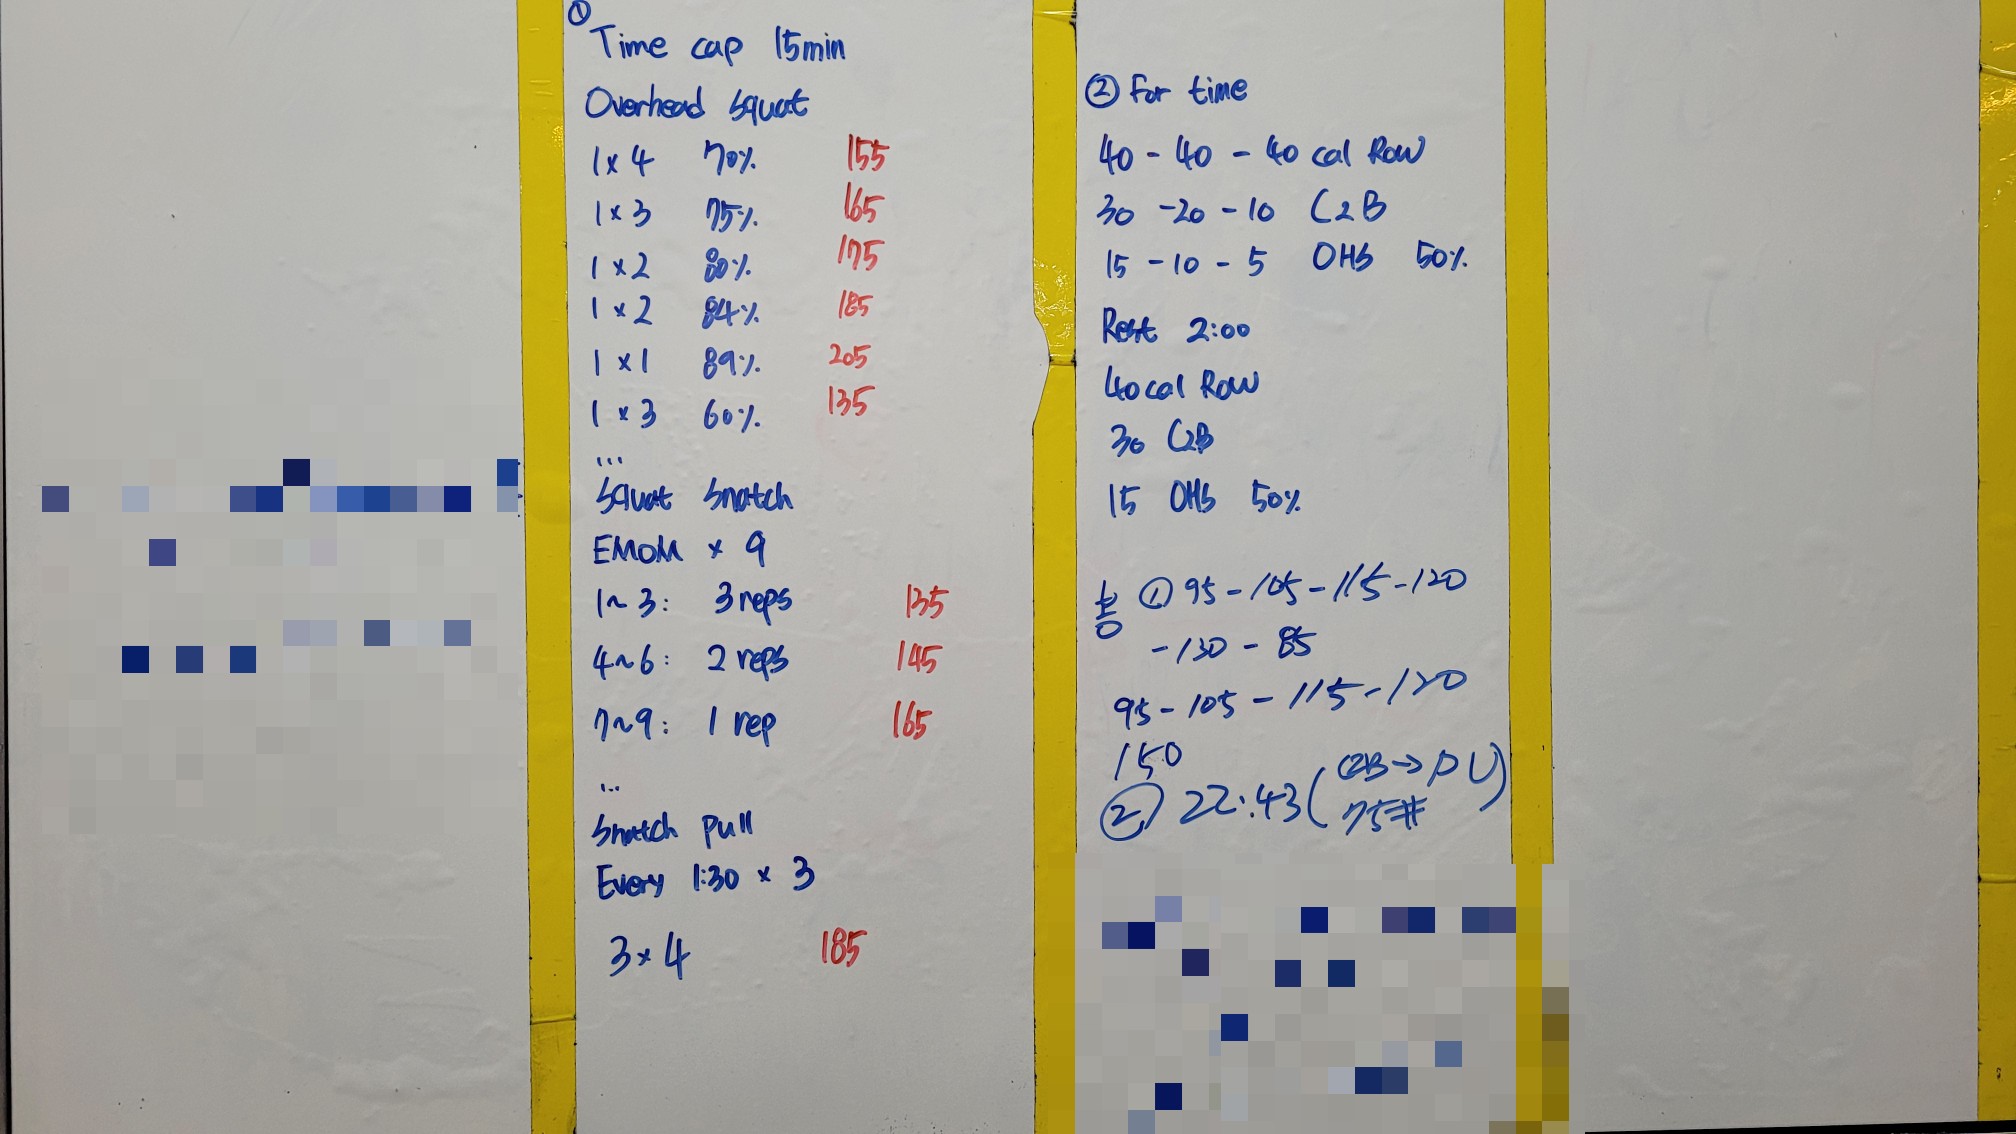 ①
Time cap 15min
Overhead Squat
1 x 4 70% 155
1 x 3 75% 165
1 x 2 80% 175
1 x 2 84% 185
1 x 1 89% 205
1 x 3 60% 135
...
Squat Snatch
EMOM x 9
1~3: 3 reps 135
4~6: 2 reps 145
7~9: 1 rep 165
...
Snatch pull
Every 1:30 x 3
3 x 4 185
② For time
40 - 40 - 40 cal Row
30 - 20 - 10 C2B
15 - 10 - 5 OHS 50%
Rest 2:00
40 cal Row
30 C2B
15 OHS 50%
① 95 - 105 - 115 - 120
- 130 - 85
95 - 105 - 115 - 120
150
② 22:43 (C2B → PU)
75#